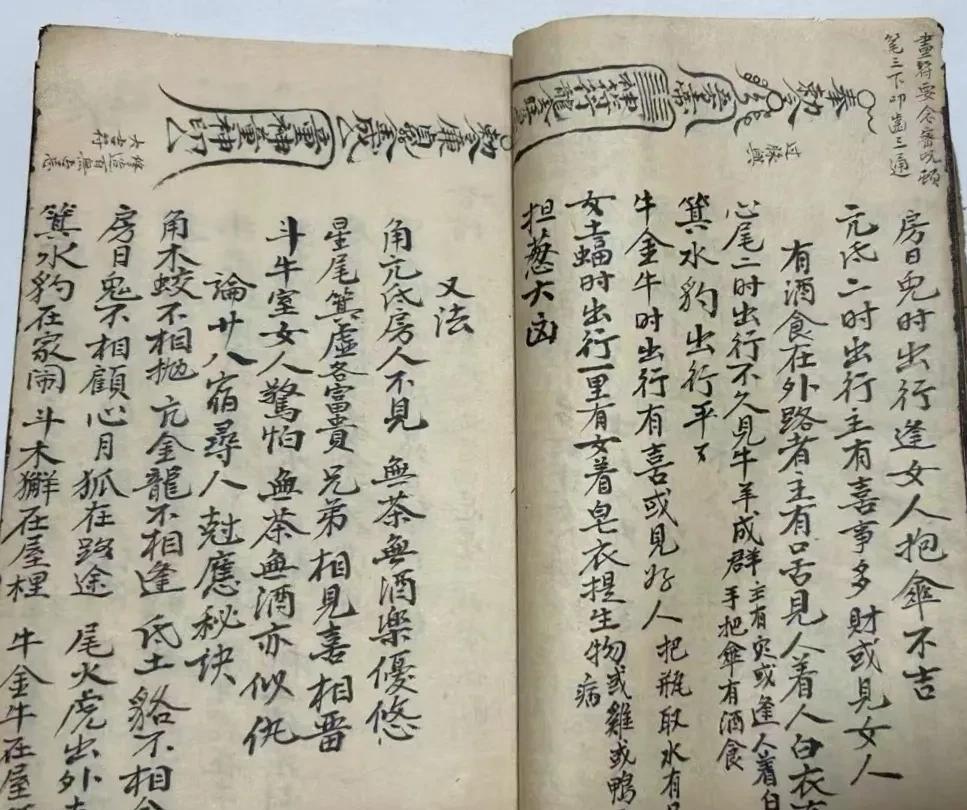 畫符要念密咒頓
笔三下叩齒三通
奉勅
过
房日兎时出行逢女人抱傘不吉
亢氐二时出行主有喜事多財或見女人
有酒食在外路者主有口舌見人着人白衣
心尾二时出行不久見牛羊成群主有灾或逢人着白
手把傘有酒食
箕水豹出行平了
牛金牛时出行有喜或見好人把瓶取水有
女土蝠时出行一里有女着皂衣提生物或雞或鴨
病
担葱大凶
勅令
神印
大吉符
百無
又法
角亢氐房人不見 無茶無酒樂優悠
星尾箕虚多富貴 兄弟相見喜相晋
斗牛室女人驚怕 無茶無酒亦似仇
論廿八宿尋人尅應秘诀
角木蛟不相抛 亢金龍不相逢 氐土貉不相
房日兎不相顧 心月狐在路途 尾火虎出外
箕水豹在家闹 斗木獬在屋梩 牛金牛在屋